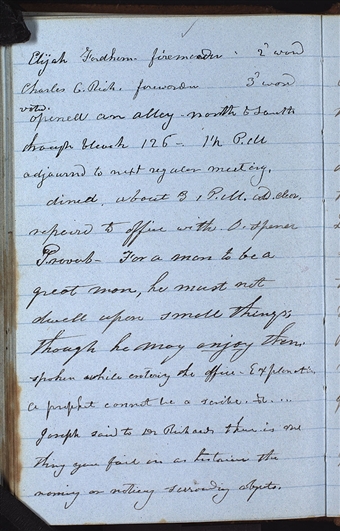 Elijah Fordham. firewarden. 2d ward
Charles C. Rich. firewarden 3d ward
voted.
opened an alley north & South
through block 126 - 1½ P.M
adjournd to next regular meeting.
dined. about 3, P.M.
repaired to office with O. Spencer
Proverb - For a man to be a
great man, he must not
dwell upon small things;
though he may enjoy them.
spoken while entering the office - Explanation,
a prophet cannot be a scribe. &c...
Joseph said to Dr Richards there is one
thing you fail in as historian the
naming or noticy surrounding objects.